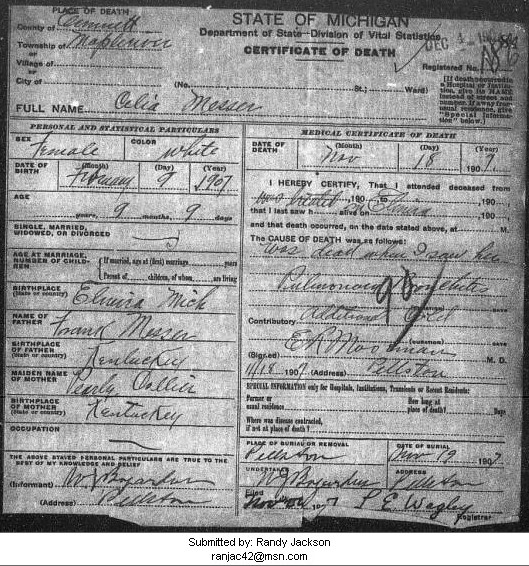 PLACE OF DEATH
County of Emmett
Township of
Village of
City of
STATE OF MICHIGAN
Department of State—Division of Vital Statistics
CERTIFICATE OF DEATH
DEC 4
Registered No.
(No. St.; Ward)
[If death occurred in
a Hospital or Institu-
tion, give its NAME
instead of street and
number. If away from
usual residence, give
"Special Informa-
tion" below.]
FULL NAME Celia Messer
PERSONAL AND STATISTICAL PARTICULARS
SEX Female COLOR White
DATE OF BIRTH (Month) (Day) (Year)
February 9 1907
AGE
years, 9 months, 9 days
SINGLE, MARRIED,
WIDOWED, OR DIVORCED S
AGE AT MARRIAGE,
NUMBER OF CHILD-
REN
If married, age at (first) marriage years
Parent of children, of whom are living
BIRTHPLACE
(State or country) Elmira Mich
NAME OF
FATHER Frank Messer
BIRTHPLACE
OF FATHER
(State or country) Kentuckey
MAIDEN NAME
OF MOTHER Pearly Collier
BIRTHPLACE
OF MOTHER
(State or country) Kentuckey
OCCUPATION
THE ABOVE STATED PERSONAL PARTICULARS ARE TRUE TO THE
BEST OF MY KNOWLEDGE AND BELIEF
(Informant) W J Bogardus
(Address) Pellston
MEDICAL CERTIFICATE OF DEATH
DATE OF
DEATH (Month) (Day) (Year)
Nov 18 1907
I HEREBY CERTIFY, That I attended deceased from
190 to 190
that I last saw h alive on 190
and that death occurred, on the date stated above, at M.
The CAUSE OF DEATH was as follows:
was dead when I saw her
Pulmonary Bronchitis
Contributory Additional Cold
(DURATION)
(Signed) M. D.
11/18 1907 (Address) Pellston
SPECIAL INFORMATION only for Hospitals, Institutions, Transients or Recent Residents:
Former or
usual residence
How long at
place of death? Days
Where was disease contracted,
if not at place of death?
PLACE OF BURIAL OR REMOVAL
Pellston
DATE OF BURIAL
Nov 19 1907
UNDERTAKER
W J Bogardus
ADDRESS
Pellston
Filed Nov 1907
Registrar
Submitted by: Randy Jackson
ranjac42@msn.com